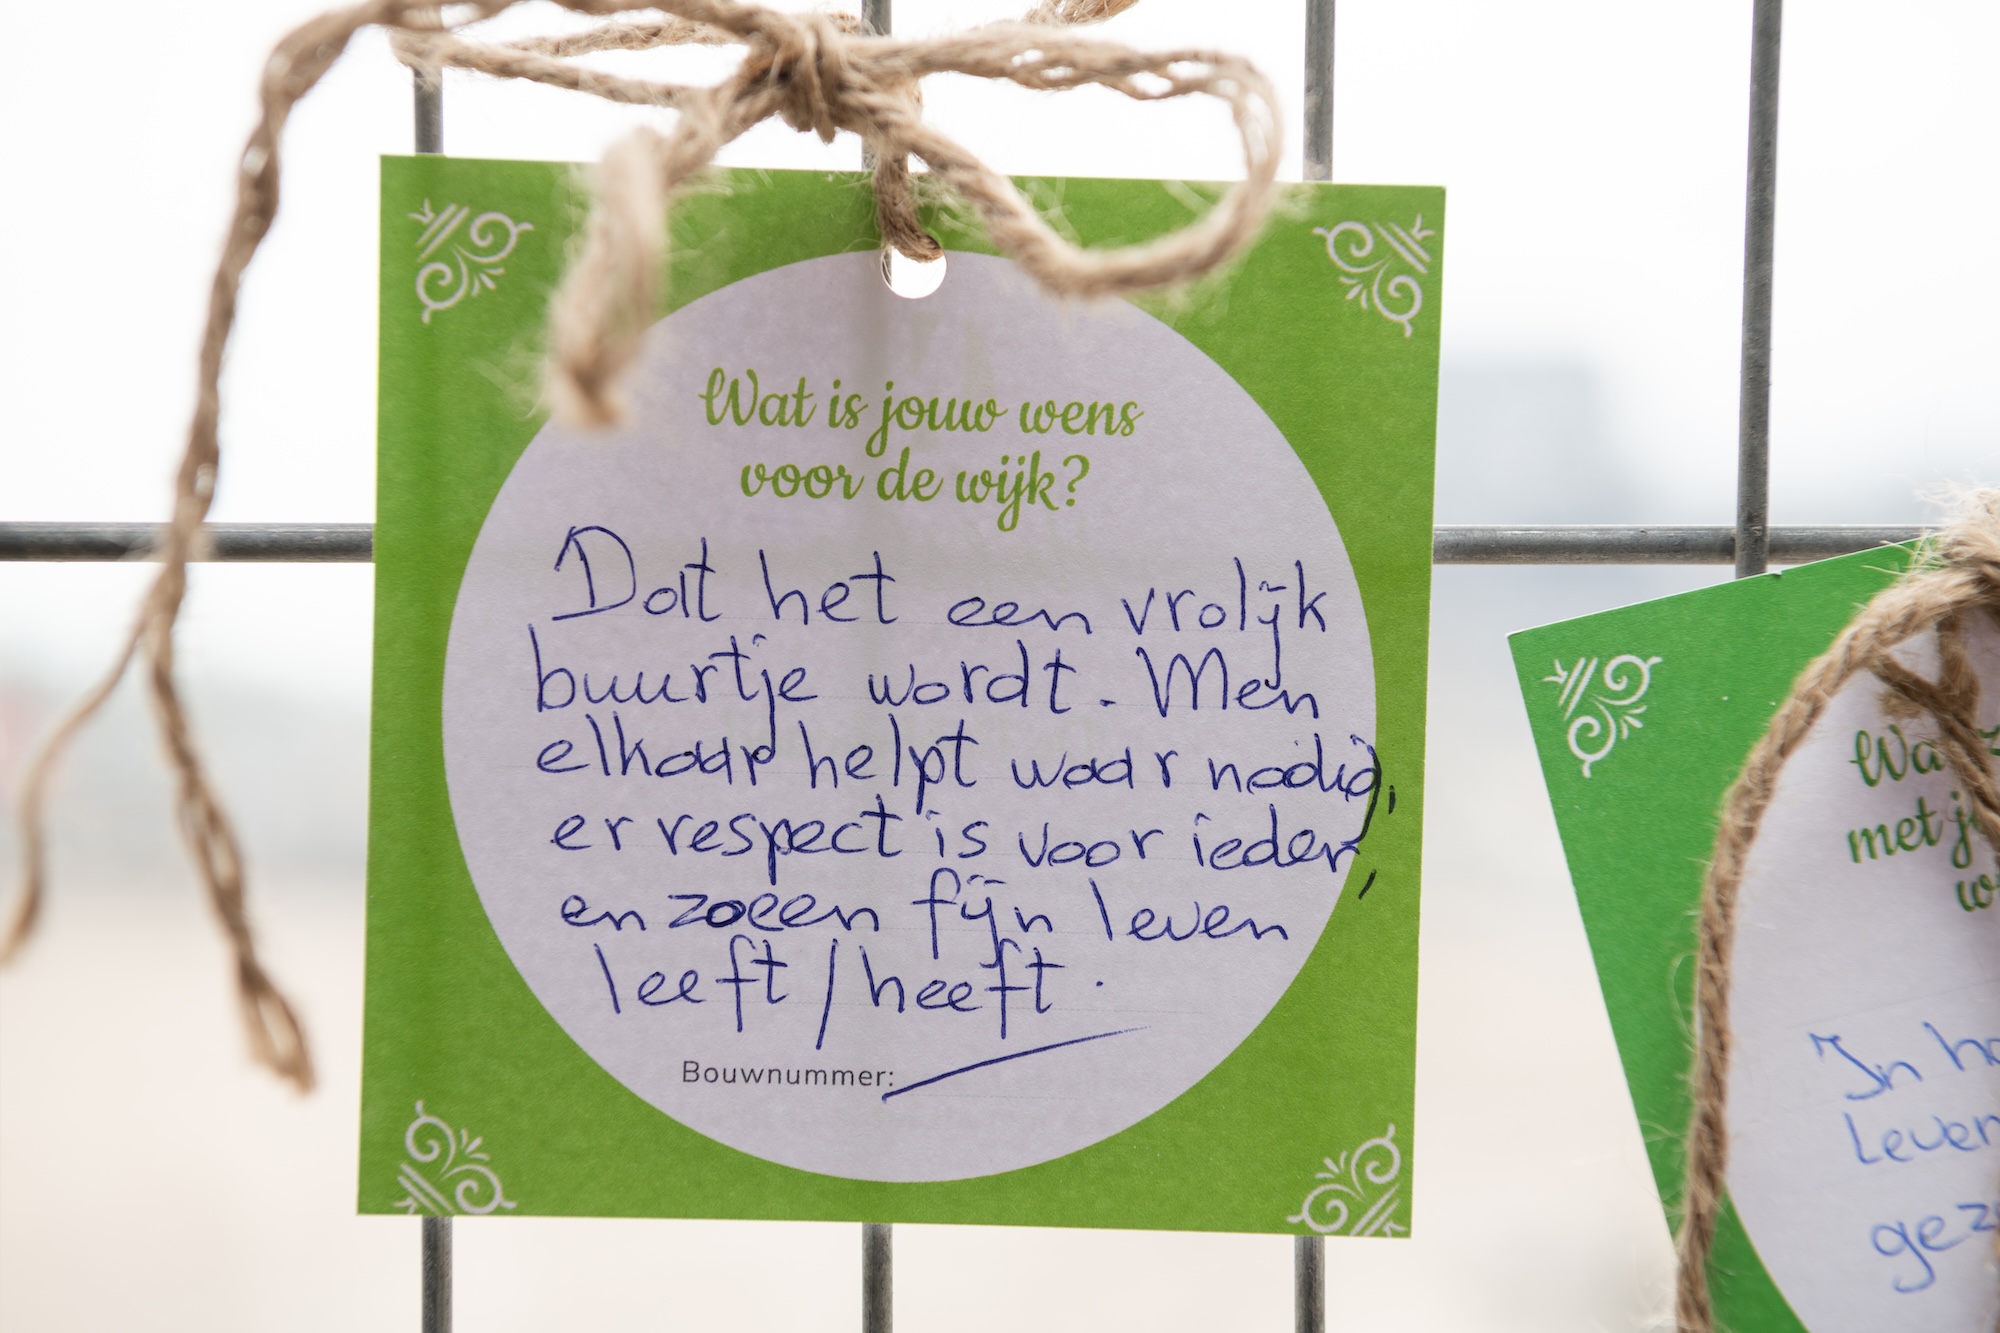 Wat is jouw wens
voor de wijk?
Dat het een vrolijk
buurtje wordt. Men
elkaar helpt waar nodig,
er respect is voor ieder,
en zoeen fijn leven
leeft / heeft.
Bouwnummer:
Wa
met j
w
In ha
Leven
gez